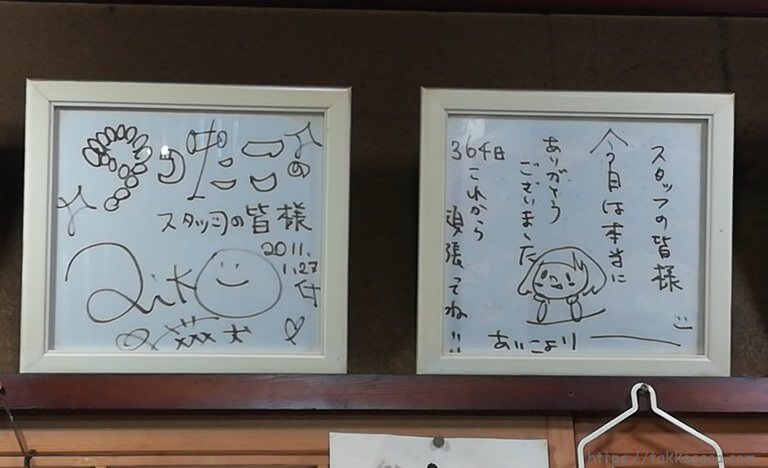 スタッフの皆様
2011.
1.27
付
スタッフの皆様
今日は本当に
ありがとう
ございました
364日
これから
頑張ってね!!
あいこより
https://takkococo.com